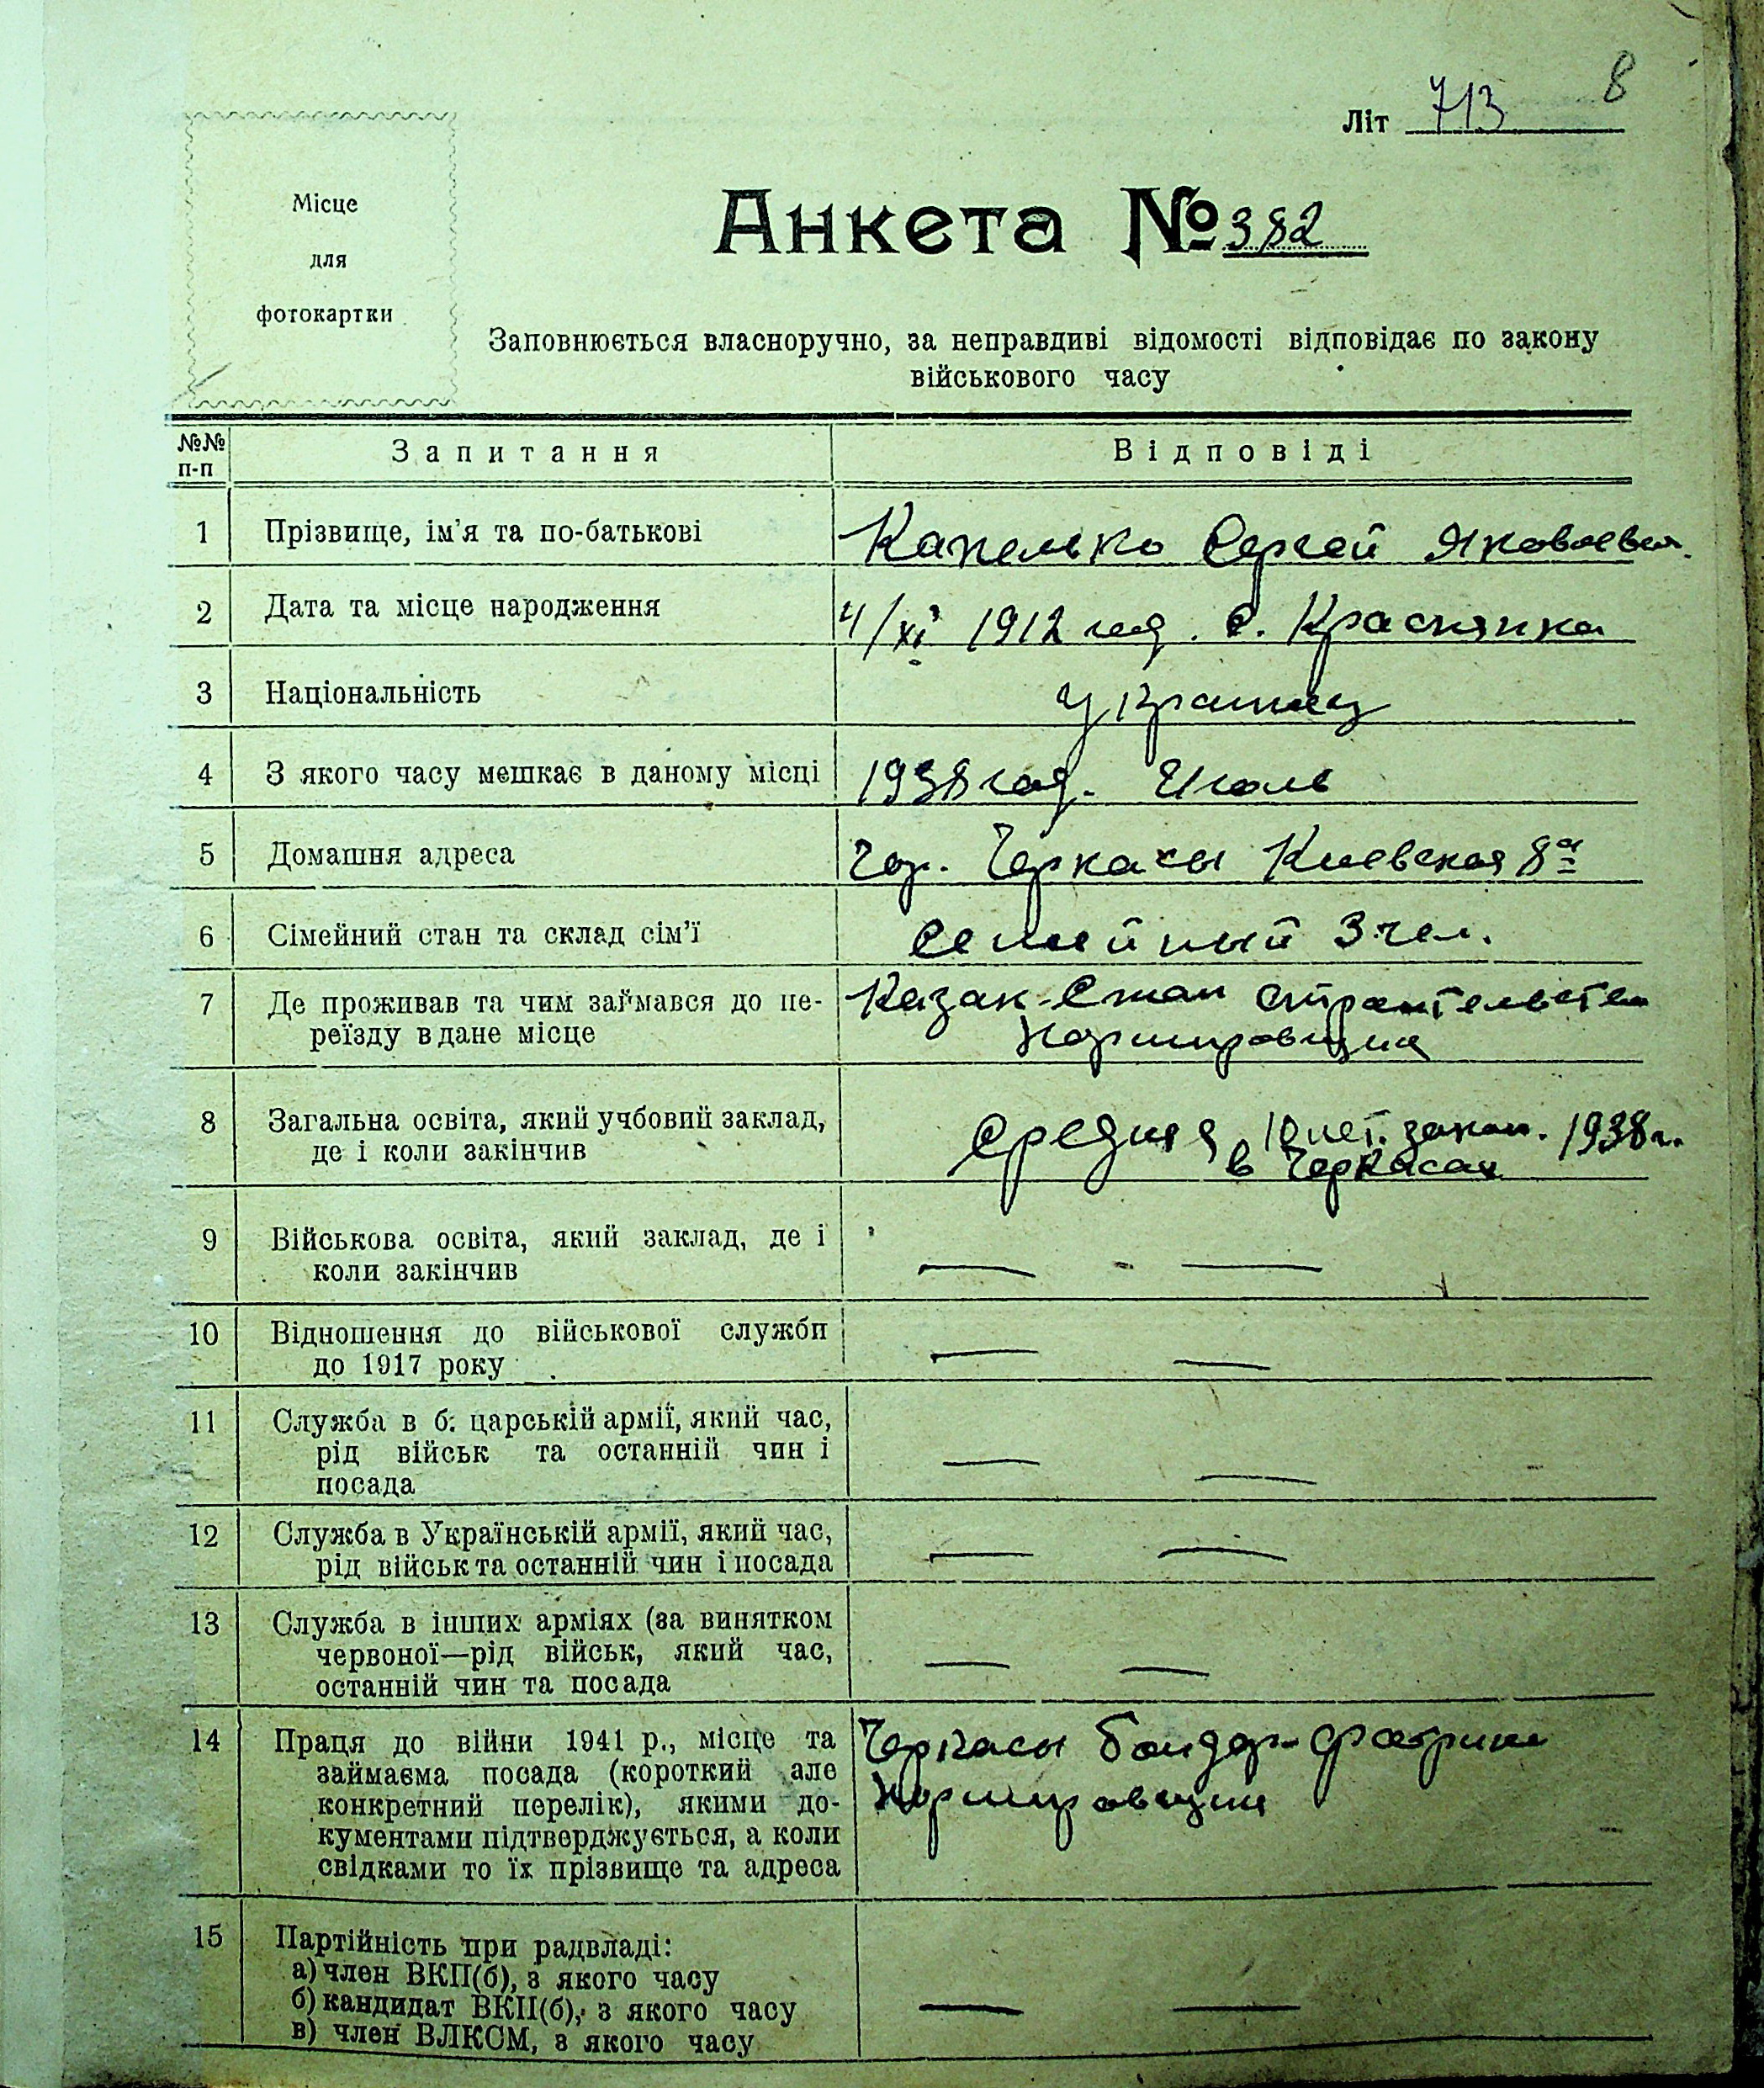 8
Літ 713
Місце
для
фотокартки
Анкета № 382
Заповнюється власноручно, за неправдиві відомості відповідає по закону
військового часу
№№ п-п Запитання Відповіді
1 Прізвище, ім'я та по-батькові Капелько Сергей Яковлевич
2 Дата та місце народження 4/XI 1912 год. с. Краснянка
3 Національність Украинец
4 З якого часу мешкає в даному місці 1938 год. Июль
5 Домашня адреса Гор. Черкасы Киевская 8а
6 Сімейний стан та склад сім'ї Семейный 3 чел.
7 Де проживав та чим займався до пе- Казак-Стан
реїзду в дане місце Нормировщик
8 Загальна освіта, який учбовий заклад, Средняя 10 лет. закон. 1938 г.
де і коли закінчив в Черкасах
9 Військова освіта, який заклад, де і
коли закінчив — —
10 Відношення до військової служби
до 1917 року — —
11 Служба в б. царській армії, який час,
рід військ та останній чин і
посада — —
12 Служба в Українській армії, який час,
рід військ та останній чин і посада — —
13 Служба в інших арміях (за винятком
червоної—рід військ, який час,
останній чин та посада — —
14 Праця до війни 1941 р., місце та Черкасы Бондар. фабрика
займаєма посада (короткий але
конкретний перелік), якими до- Нормировщик
кументами підтверджується, а коли
свідками то їх прізвище та адреса
15 Партійність при радвладі:
а) член ВКП(б), з якого часу
б) кандидат ВКП(б), з якого часу — —
в) член ВЛКСМ, з якого часу